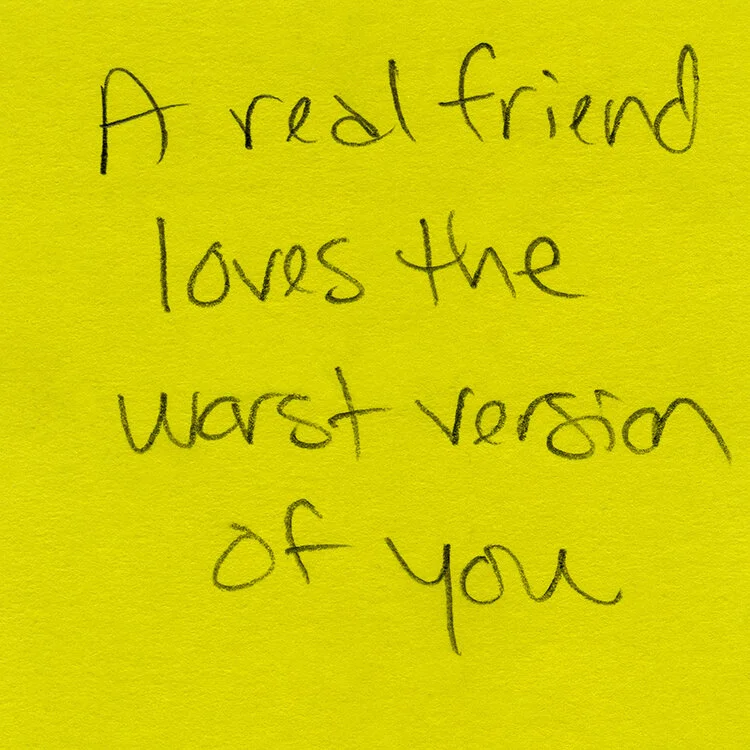 A real friend
loves the
worst version
of you